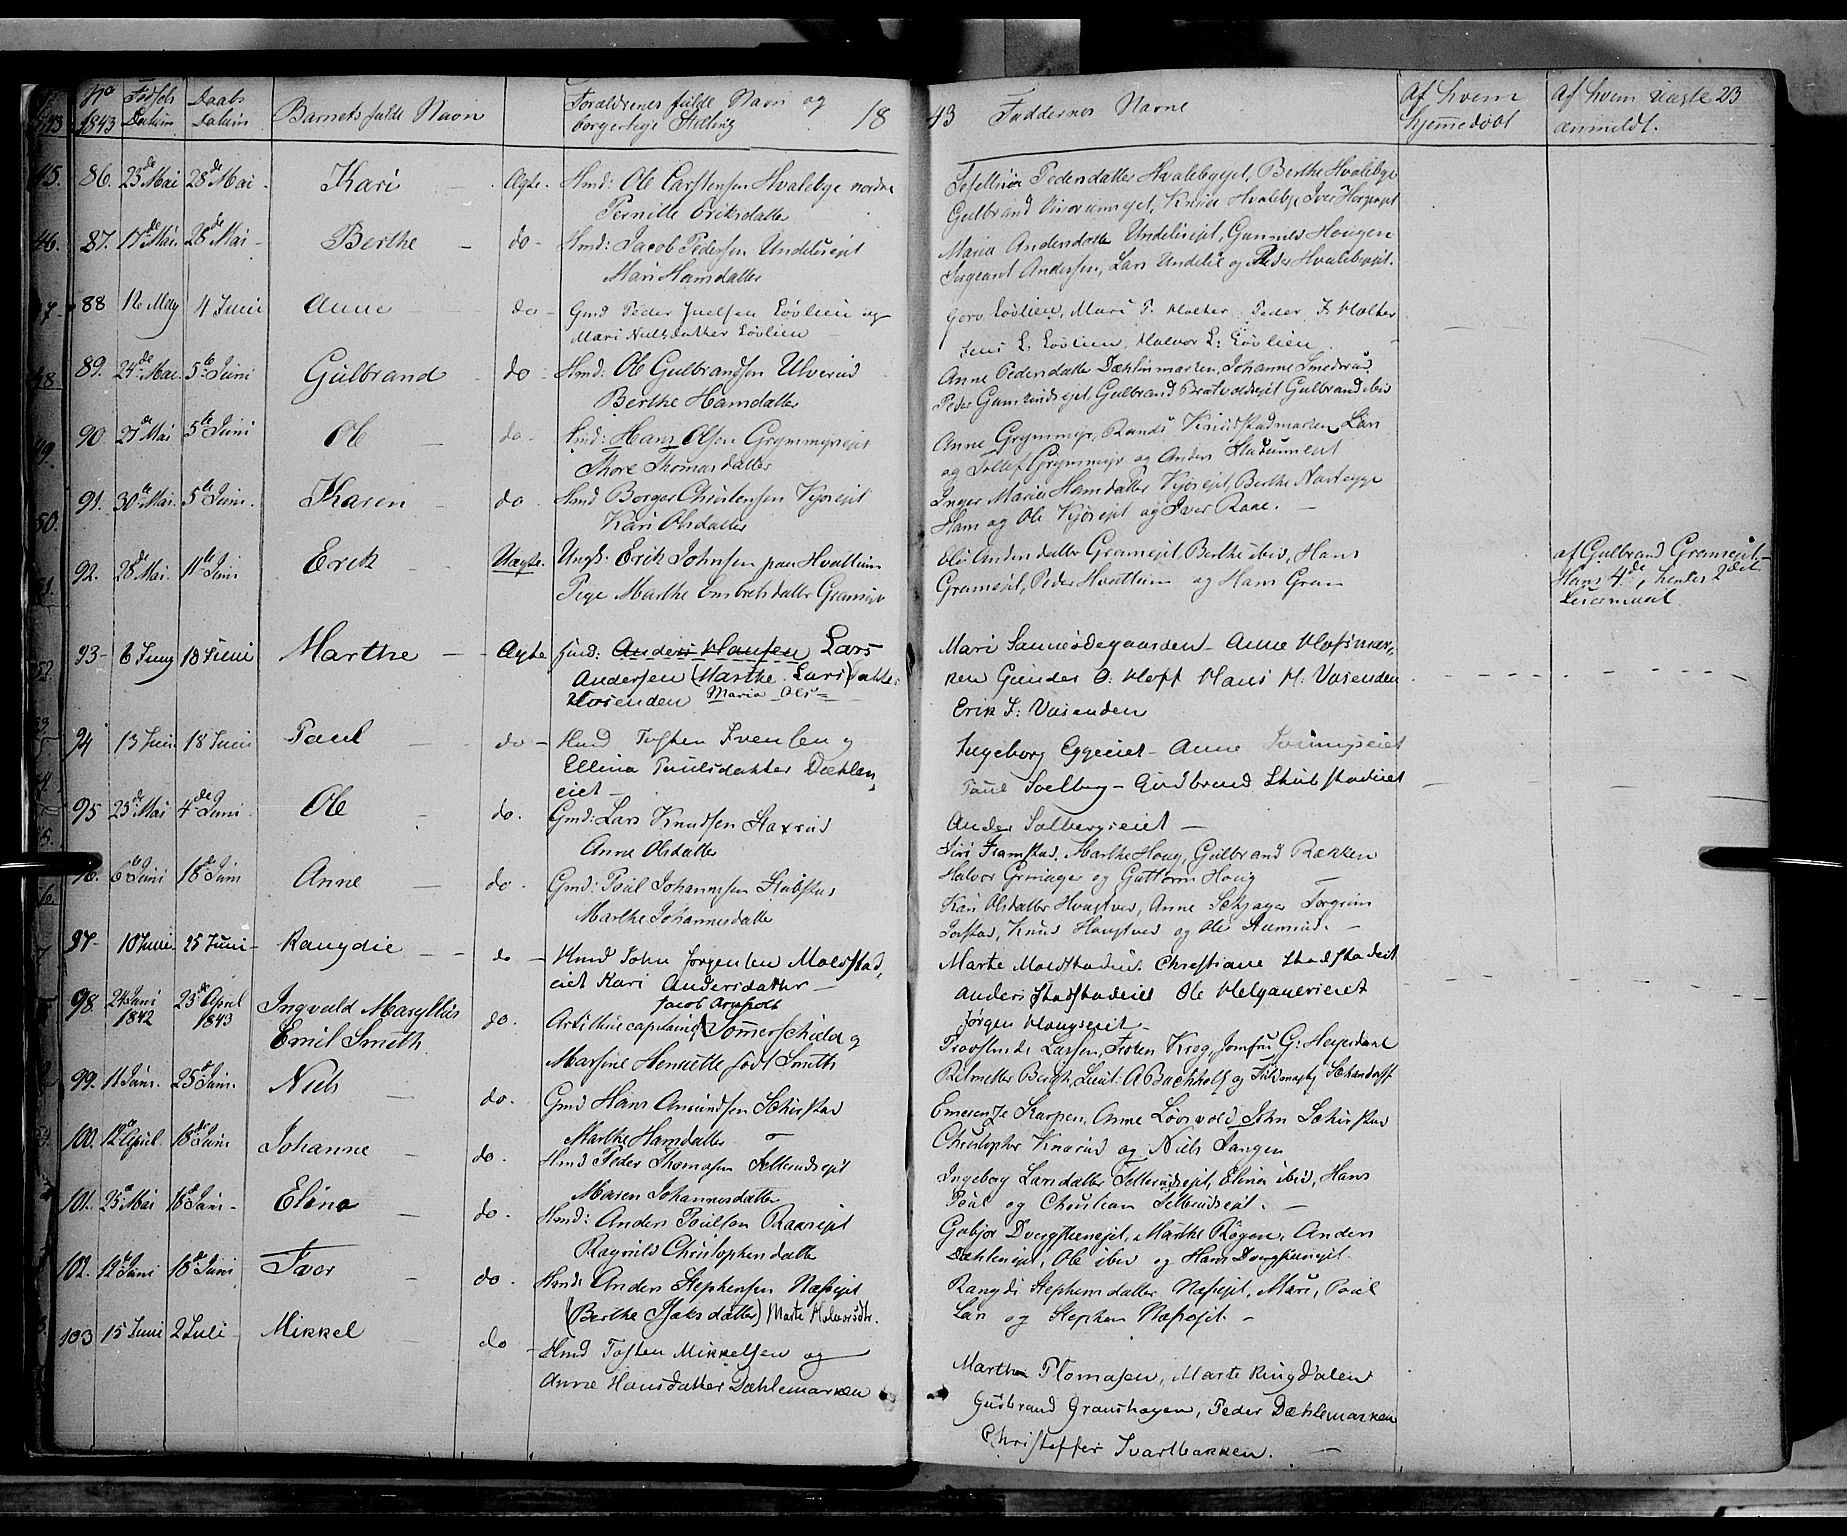 No 1843 Fødsels Datum Daabs Datum Barnets fulde Navn Forældrenes fulde Navn og borgerlige Stilling 18
43 Faddernes Navne Af hvem hjemmedøbt Af hvem uægte anmeldt. 23
86. 23de Mai 28de Mai Kari Ægte. Hmd: Ole Carstensen Hvalebye nordre
Pernille Eriksdatter
Pedersdatter Hvalebyejet, Berthe Hvalebye
Gulbrand Hvalebye Iver
87. 17de Mai 28de Mai Berthe do Hmd: Jacob Pedersen Undeliejet
Mari Hansdatter
Maria Andersdatter Undeliejet, Gunnild Haugen
Sergeant Andersen, Lars Undelie og Peder Hvalebyejet.
88 12 May 4 Juni Anne do Gmd Peder Juelsen Løvlien og
Mari Nielsdatter Løvlien
Goro Løvlien, Mari P. Molter Peder J. Molter
Jens L. Løvlien, Halvor L: Løvlien.
89. 24de Mai 5te Juni Gulbrand do Hmd: Ole Gulbrandsen Ulverud
Berthe Hansdatter
Anne Pedersdatter Dæhlinmarken, Johanne Smedsrud
Peder Gulbrand Bratvoldsejet Gulbrand ibid
90 27de Mai 5te Juni Ole do Hmd: Hans Olsen Grymmyrejet
Thore Thomasdatter
Anne Grymmyr, Randi Knudstadmarken Lars
og Tollef Grymmyr og Anders
91. 30te Mai 5te Juni Karen do Hmd Borger Christensen Kjosejet
Kari Olsdatter
Inger Maria Hansdatter Kjosejet, Berthe
Hans og Ole Kjosejet og Iver Raae.
92. 28de Mai. 11te Juni Erik Uægte. Ungk: Erik Johnsen paa Hvattum
Pige Marthe Embretsdatter Gransejet
Eli Andersdatter Gransejet, Berthe ibid, Hans
Gransejet, Peder Hvattum og Hans Gran
af Gulbrand Gransejet
Hans 4de, hendes 2det
Leiermaal
93 6 Juny 18 Juni Marthe Ægte Hmd: Anders Hansen Lars
Andersen (Marthe Larsdatter
Vasenden Maria Ols=
Mari Sanneødegaarden Anne Hofsmar=
ken Gunder O. Hoff Hans H. Vasenden
Erik J: Vasenden
94 13 Juni 18 Juni Paul do Hmd Tosten Svensen og
Ellina Paulsdatter Dæhlen
eiet
Ingeborg Eggeeiet Anne
Paul Solberg Gudbrand Skubstadeiet
Anders Solbergseiet
95 25de Mai 4de Juni Ole do. Gmd: Lars Knudsen Staxrud
Anne Olsdatter
Siri Framstad, Marthe Houg, Gulbrand Rækken
Halvor Grinager og Guttorm Houg
96. 6te Juni 18de Juni Anne do. Gmd: Poul Johannesen Skubstad
Marthe Johannesdatter
Kari Olsdatter Haugtvedt, Anne Torgrim
Knud Haugtvedt og Ole
97 10 Juni 25 Juni Rangdie do Hmd John Jørgensen Molstad,
eiet Kari Andersdatter
Marte Molstadeiet Christiane Stadstadeiet
Anders Stadstadeiet Ole Helganerieiet
Jørgen Haugseiet
98. 24 Juni 1842 23de April 1843 Ingvald Marylius
Emil Smith do. Artillericapitaine Jacob Arnholdt Sommerschield og
Marsine Henriette født Smith
Lassen, Frøken Krog, Jomfru G: Heyerdahl
Ritmester Bergh, Lieut: A Bachholf og
99. 11 Juni. 25te Juni. Niels do. Gmd Hans Amundsen Sæhirstad
Marthe Hansdatter
Emerentze Karpen, Anne Løvsvold John Sæhirstad
Christopher Knarud og Niels Tangen
100. 12te April 18de Juni Johanne do. Hmd Peder Thomasen Sellerudsejet
Maren Johannesdatter
Ingeborg Larsdatter Sellerudsejet, Elina ibid, Hans
Poul og Christian Sellerudsejet.
101. 25de Mai 18de Juni Elina do. Hmd: Anders Poulsen Raasejet
Ragnild Christophersdatter
Gubjør Dvergsteensejet, Marthe Røgen, Anders
Dæhlenejet, Ole ibid og Hans Dvergsteensejet.
102. 12te Juni 18de Juni Iver do. Hmd: Anders Stephensen Næssejet
(Berthe Isaksdatter) Marte Halvorsdtr.
Rangdi Stephensdatter Næssejet, Mari, Poul
Lars og Stephen Næssejet.
103 15 Juni 2 Juli Mikkel do Hmd Tosten Mikkelsen og
Anne Hansdatter Dæhlemarken
Marthe Thomasen, Marte Ringdalen
Gudbrand Granshagen, Peder Dæhlemarken
Christoffer Svartbakken.